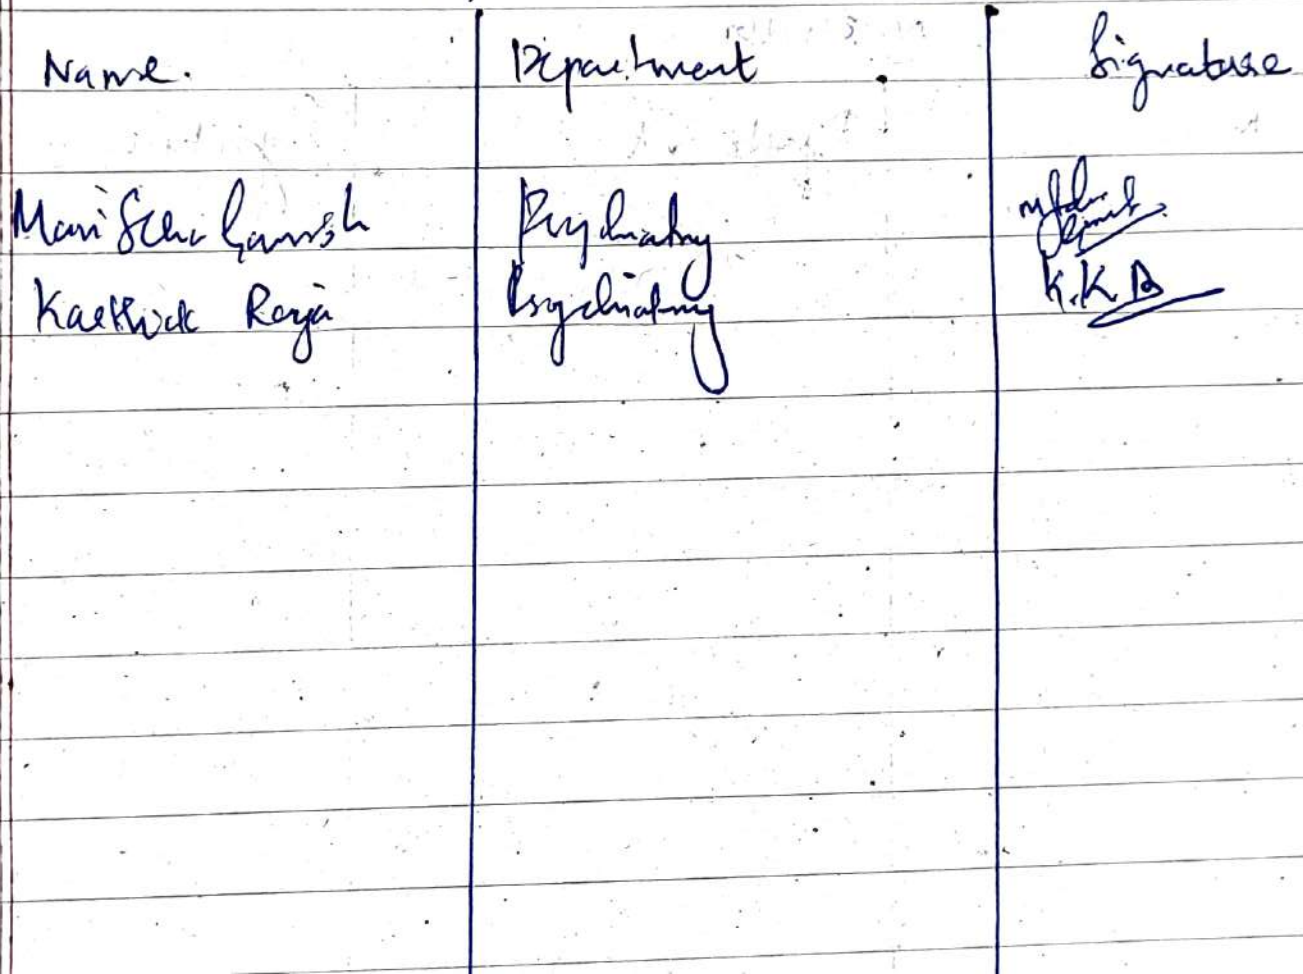 Name. Department Signature
Mari Selva Ganesh Psychiatry
Karthick Raja Psychiatry K.K.R